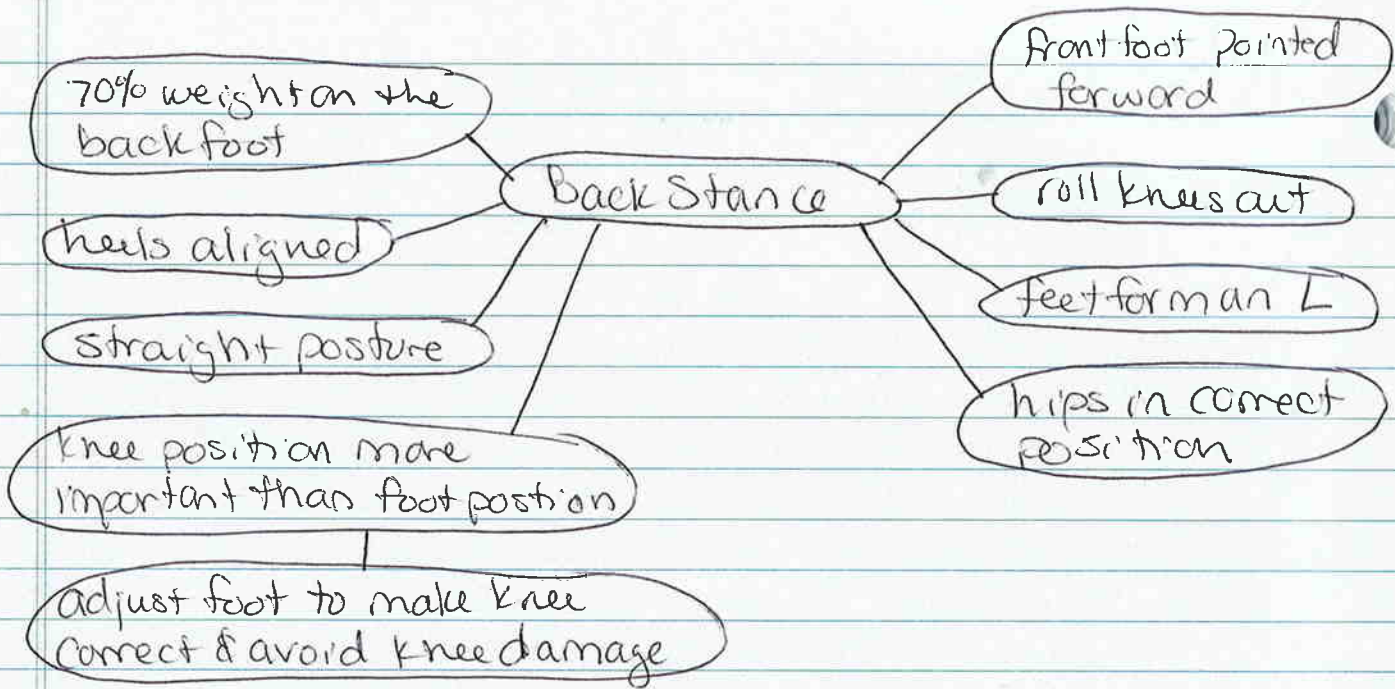 Back Stance
70% weight on the
back foot
heels aligned
straight posture
knee position more
important than foot postion
adjust foot to make knee
correct & avoid knee damage
front foot pointed
forward
roll knees out
feet form an L
hips in correct
position